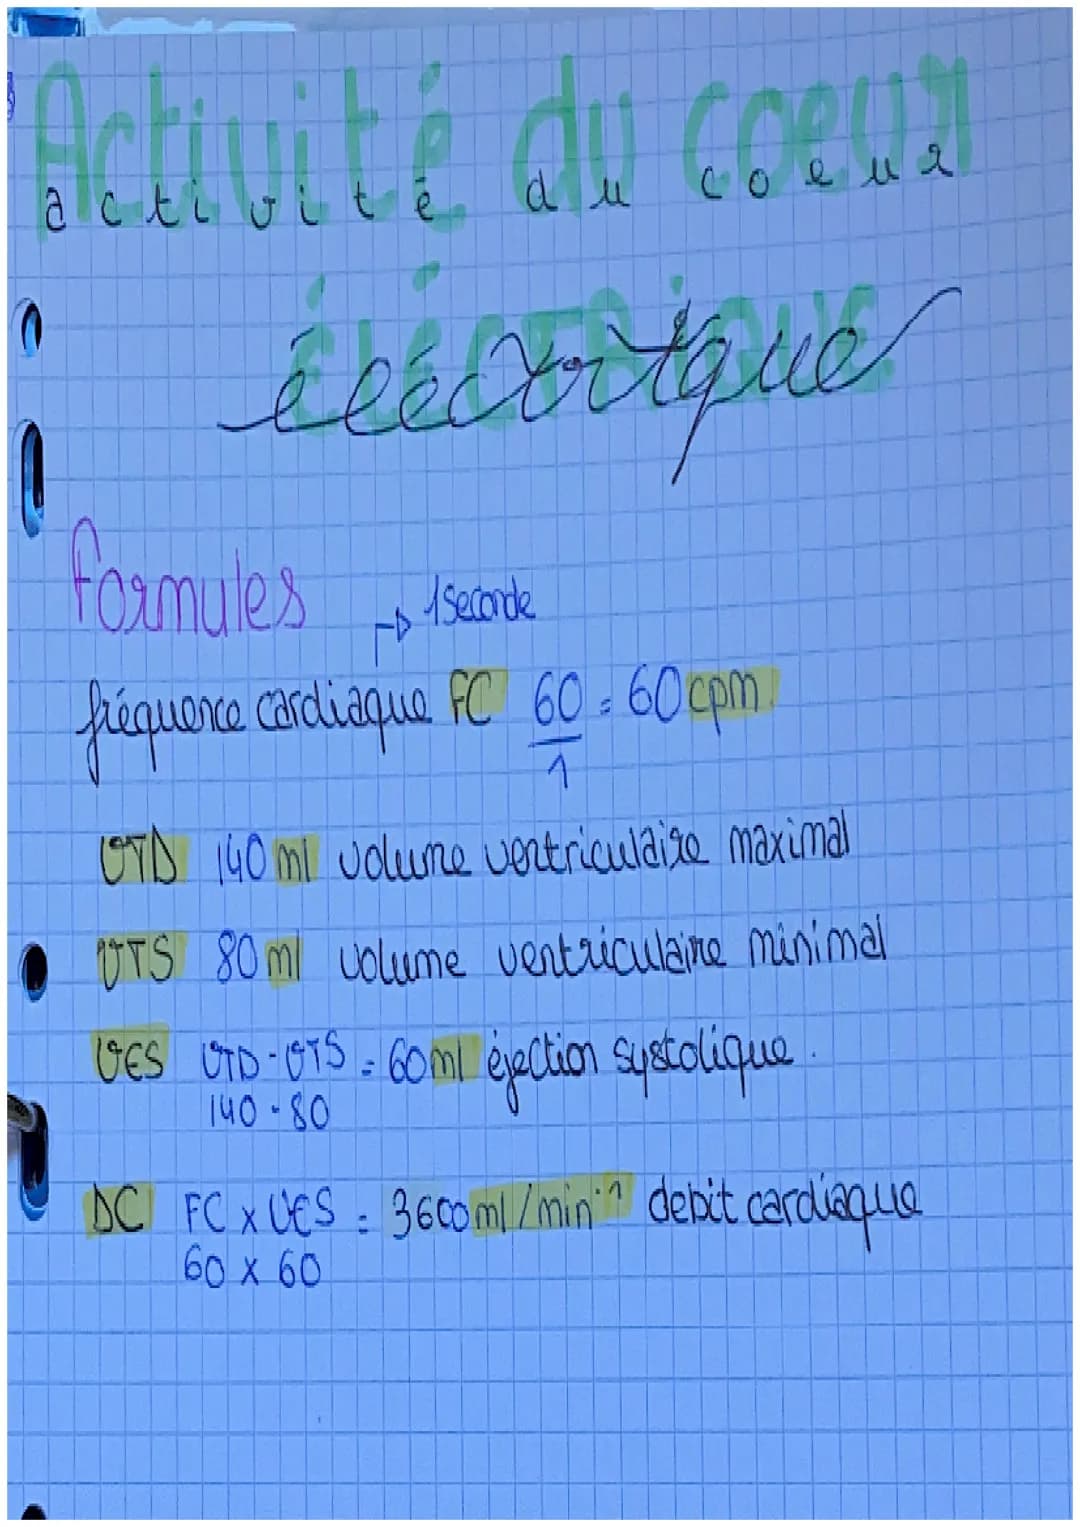 Activité du coeur
activité du coeur
éléctrique
éléctrique
formules
→ 1 seconde
fréquence cardiaque FC 60 = 60 cpm
1
VTD 140 ml volume ventriculaire maximal
VTS 80 ml volume ventriculaire minimal
VES VTD - VTS = 60 ml éjection systolique.
140 - 80
DC FC x VES = 3600 ml/min⁻¹ debit cardiaque
60 x 60